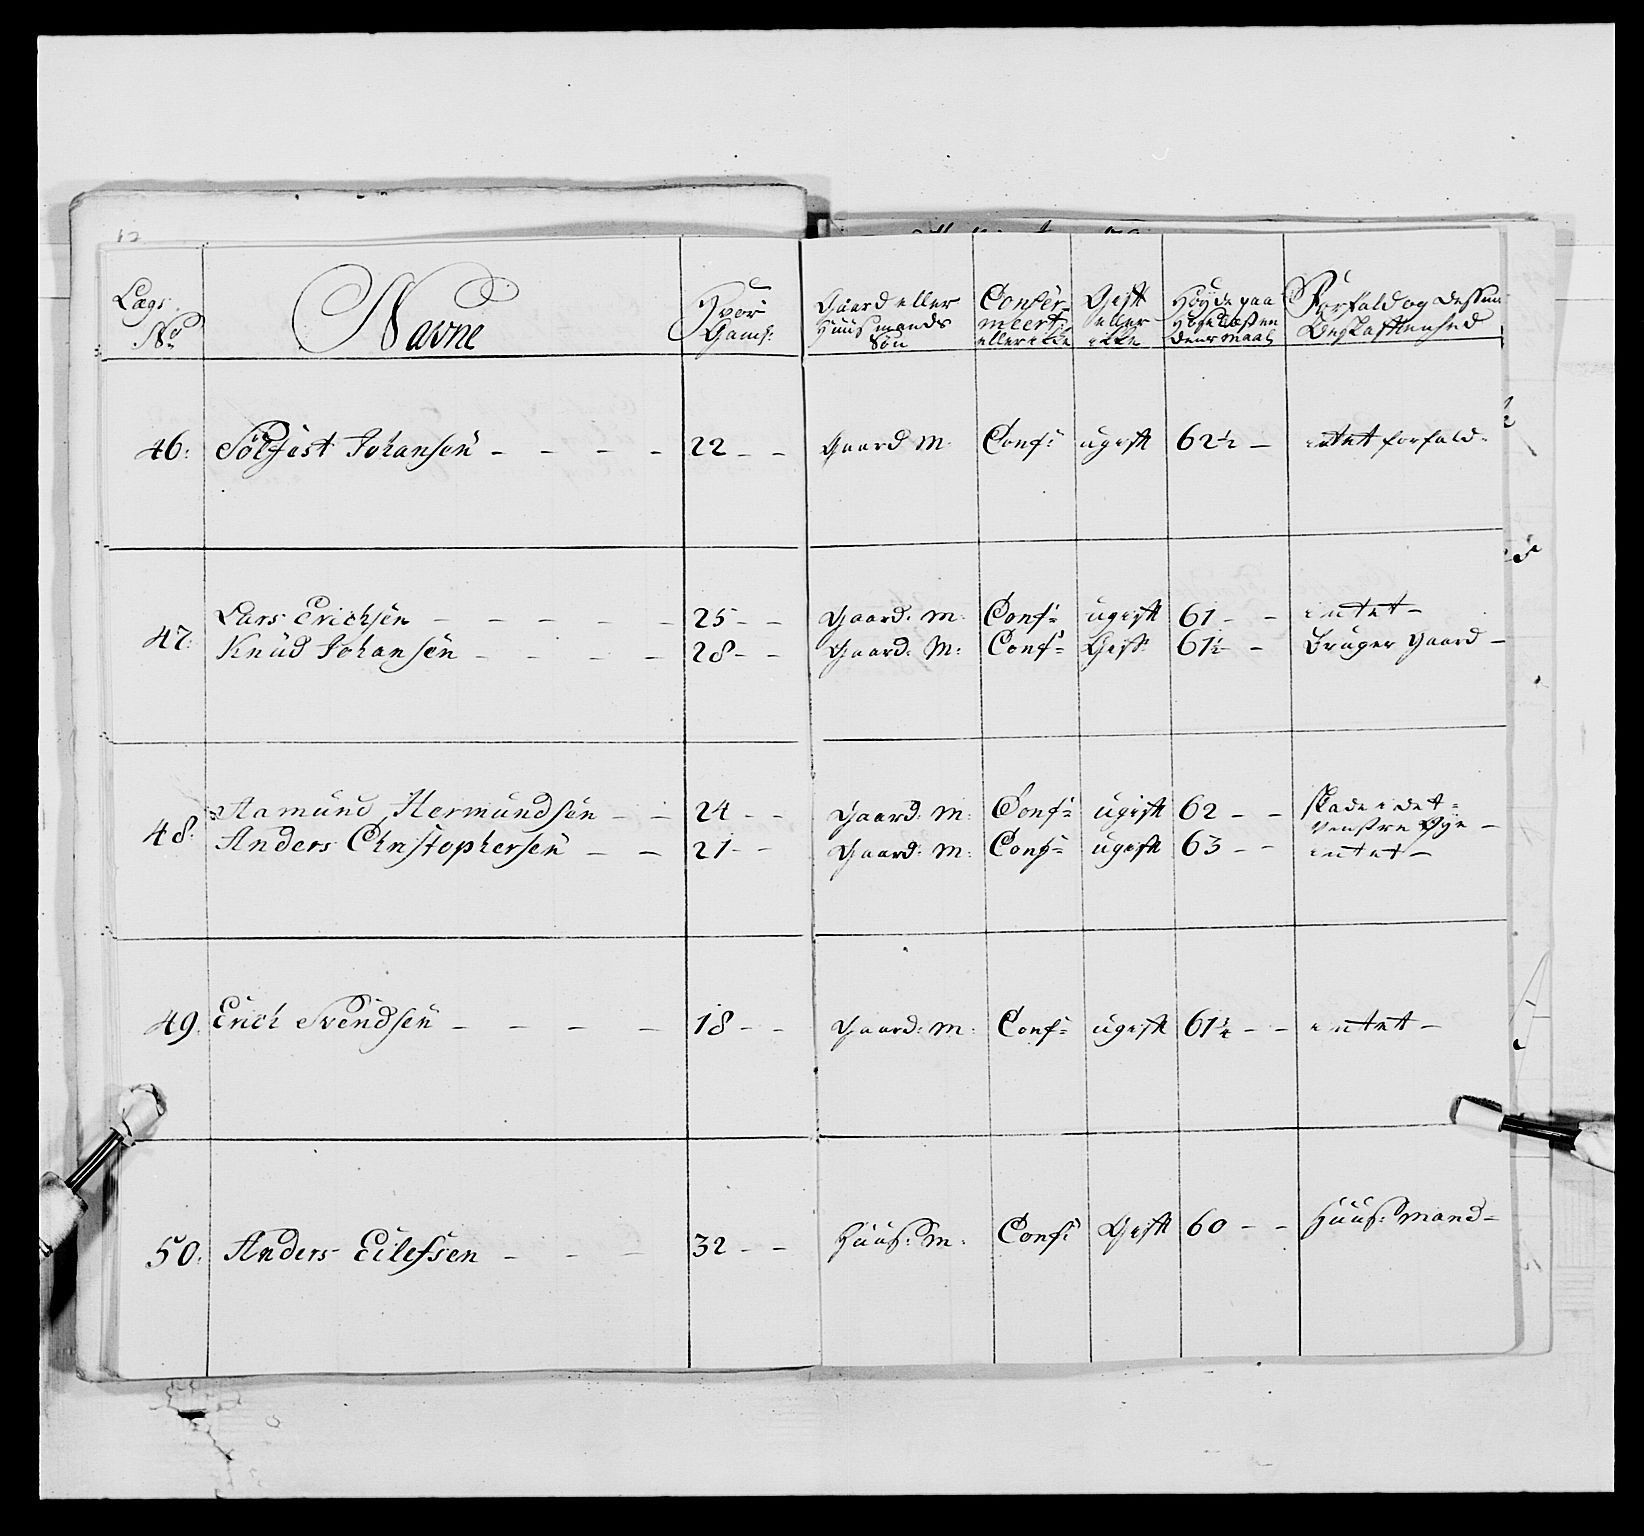 Lægs No | Navne | Hvor Gaml: | Gaard eller Huusmands Søn | Confer-meert eller ikke | Gift eller ikke | Høyde paa Hosesaaler deres maal | Forfald og dessen Beskaffenhed
46: Sølfest Johansen - - - - 22 - - Gaard M: Conf: ugift 62½ - intet forfald-
47: Lars Erichsen - - - - - 25 - - Gaard: M: Conf: ugift 61 - - intet -
Knud Johansen - - - - 28 - - Gaard: M: Conf: Gift 61½ - Bruger Gaard -
48: Aamund Hermundsen - - 24 - - Gaard: M: Conf: ugift 62 - - skade i det venstre Øye -
Anders Christophersen - - 21 - - Gaard: M: Conf: ugift 63 - - intet -
49: Erich Svendsen - - - - 18 - - Gaard: M: Conf: ugift 61¼ - - intet -
50: Anders Eilefsen - - - 32 - - Huus: M: Conf: Gift 60 - - Huus: mand -